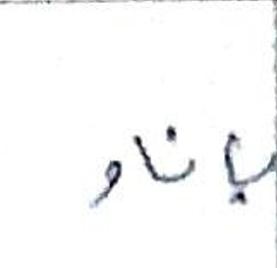 باناو